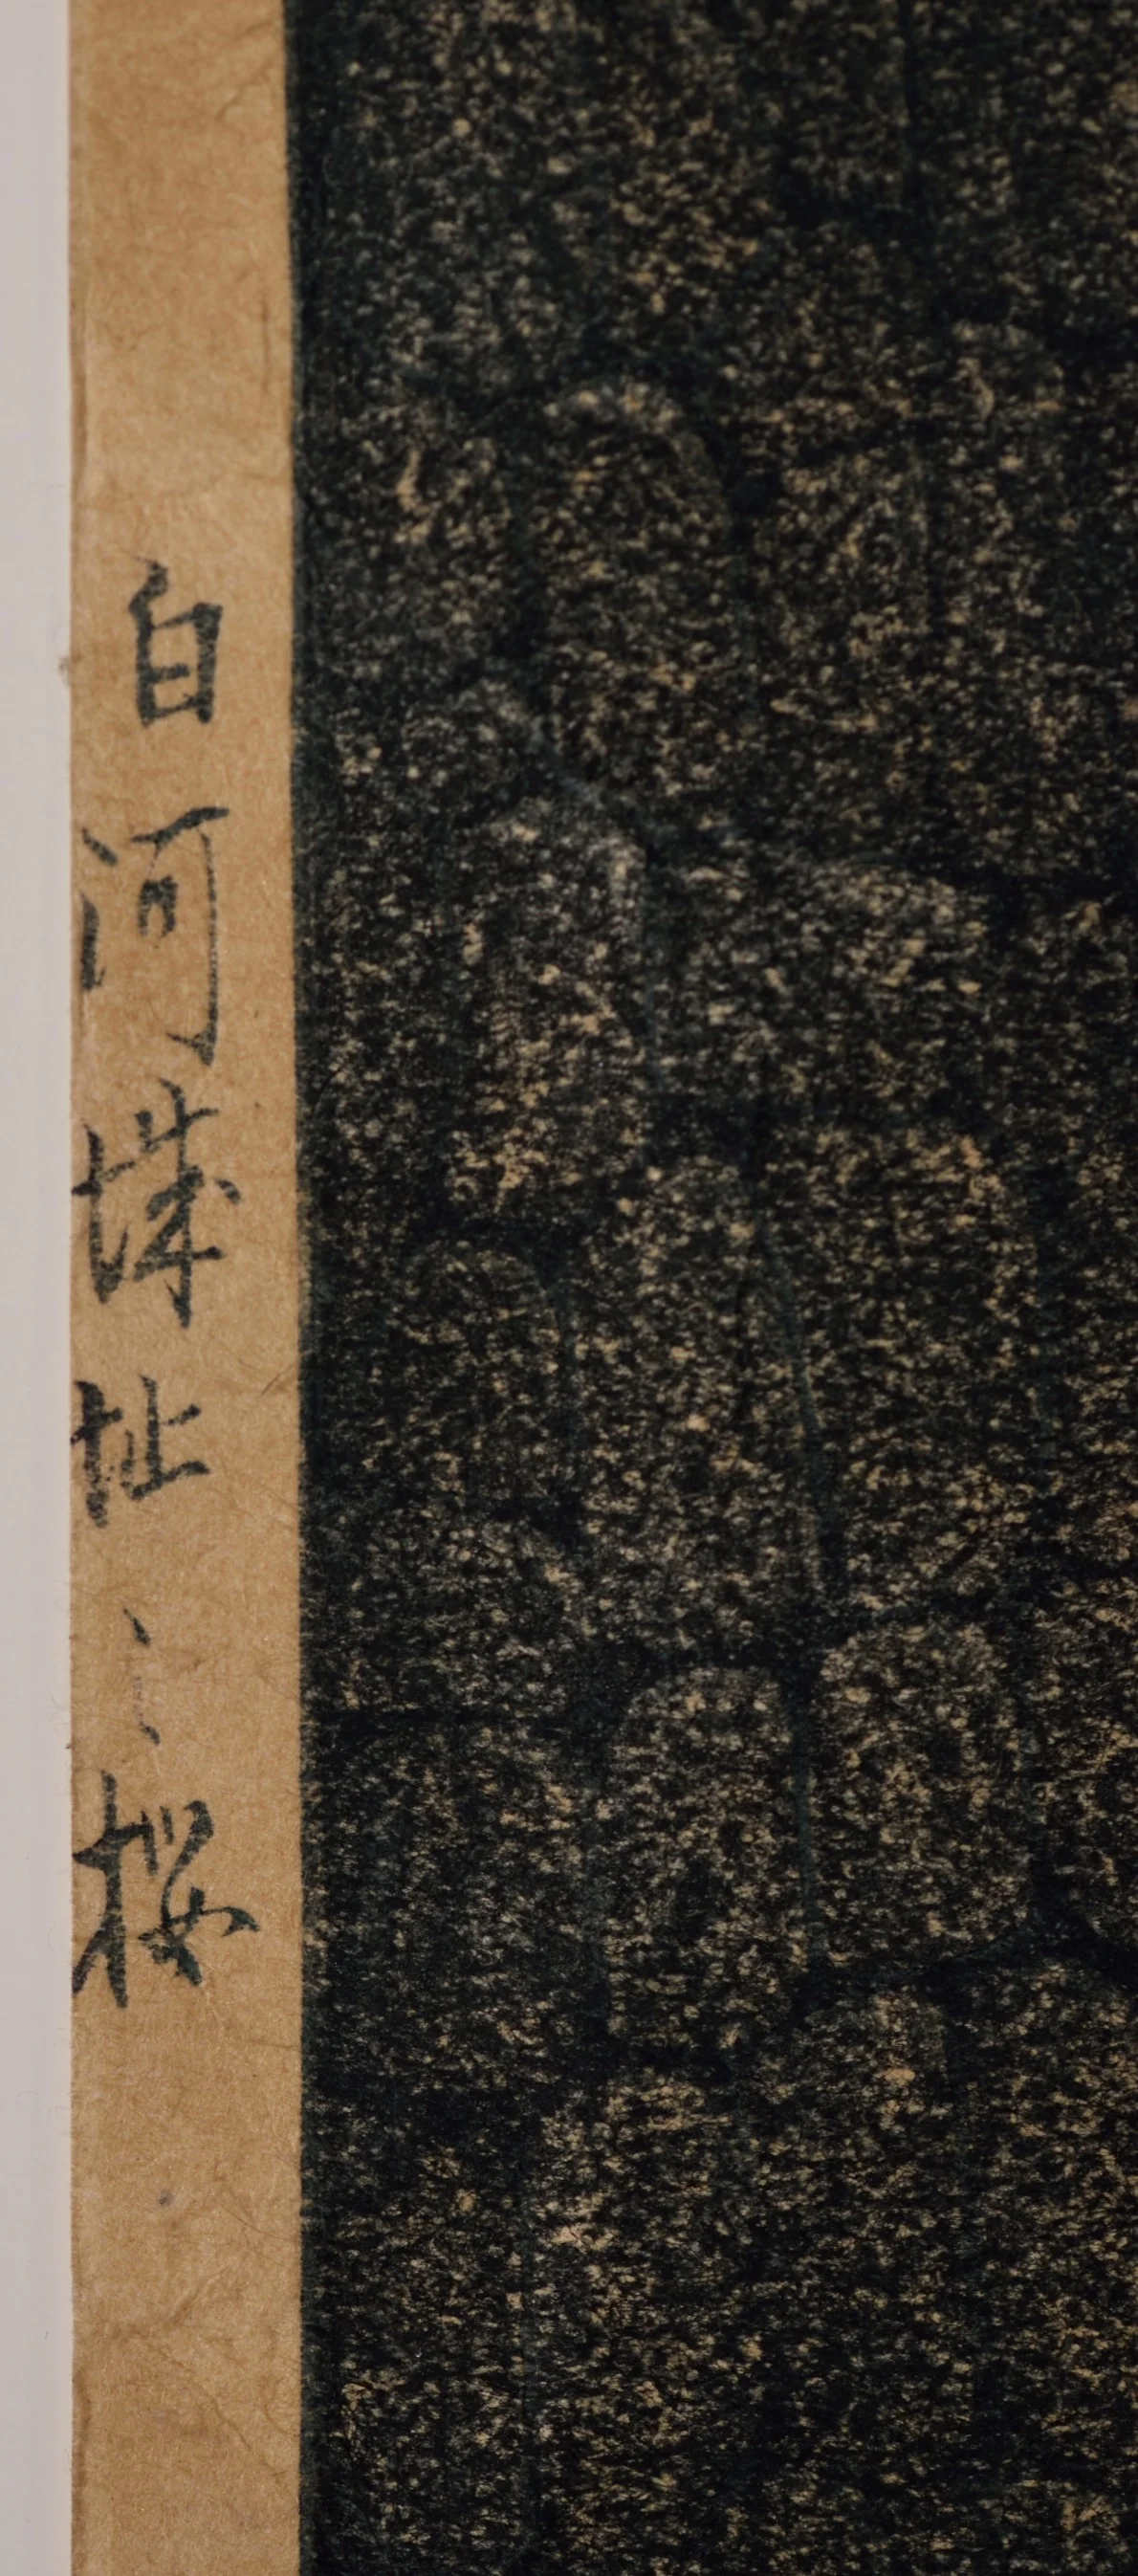 白河城址之桜